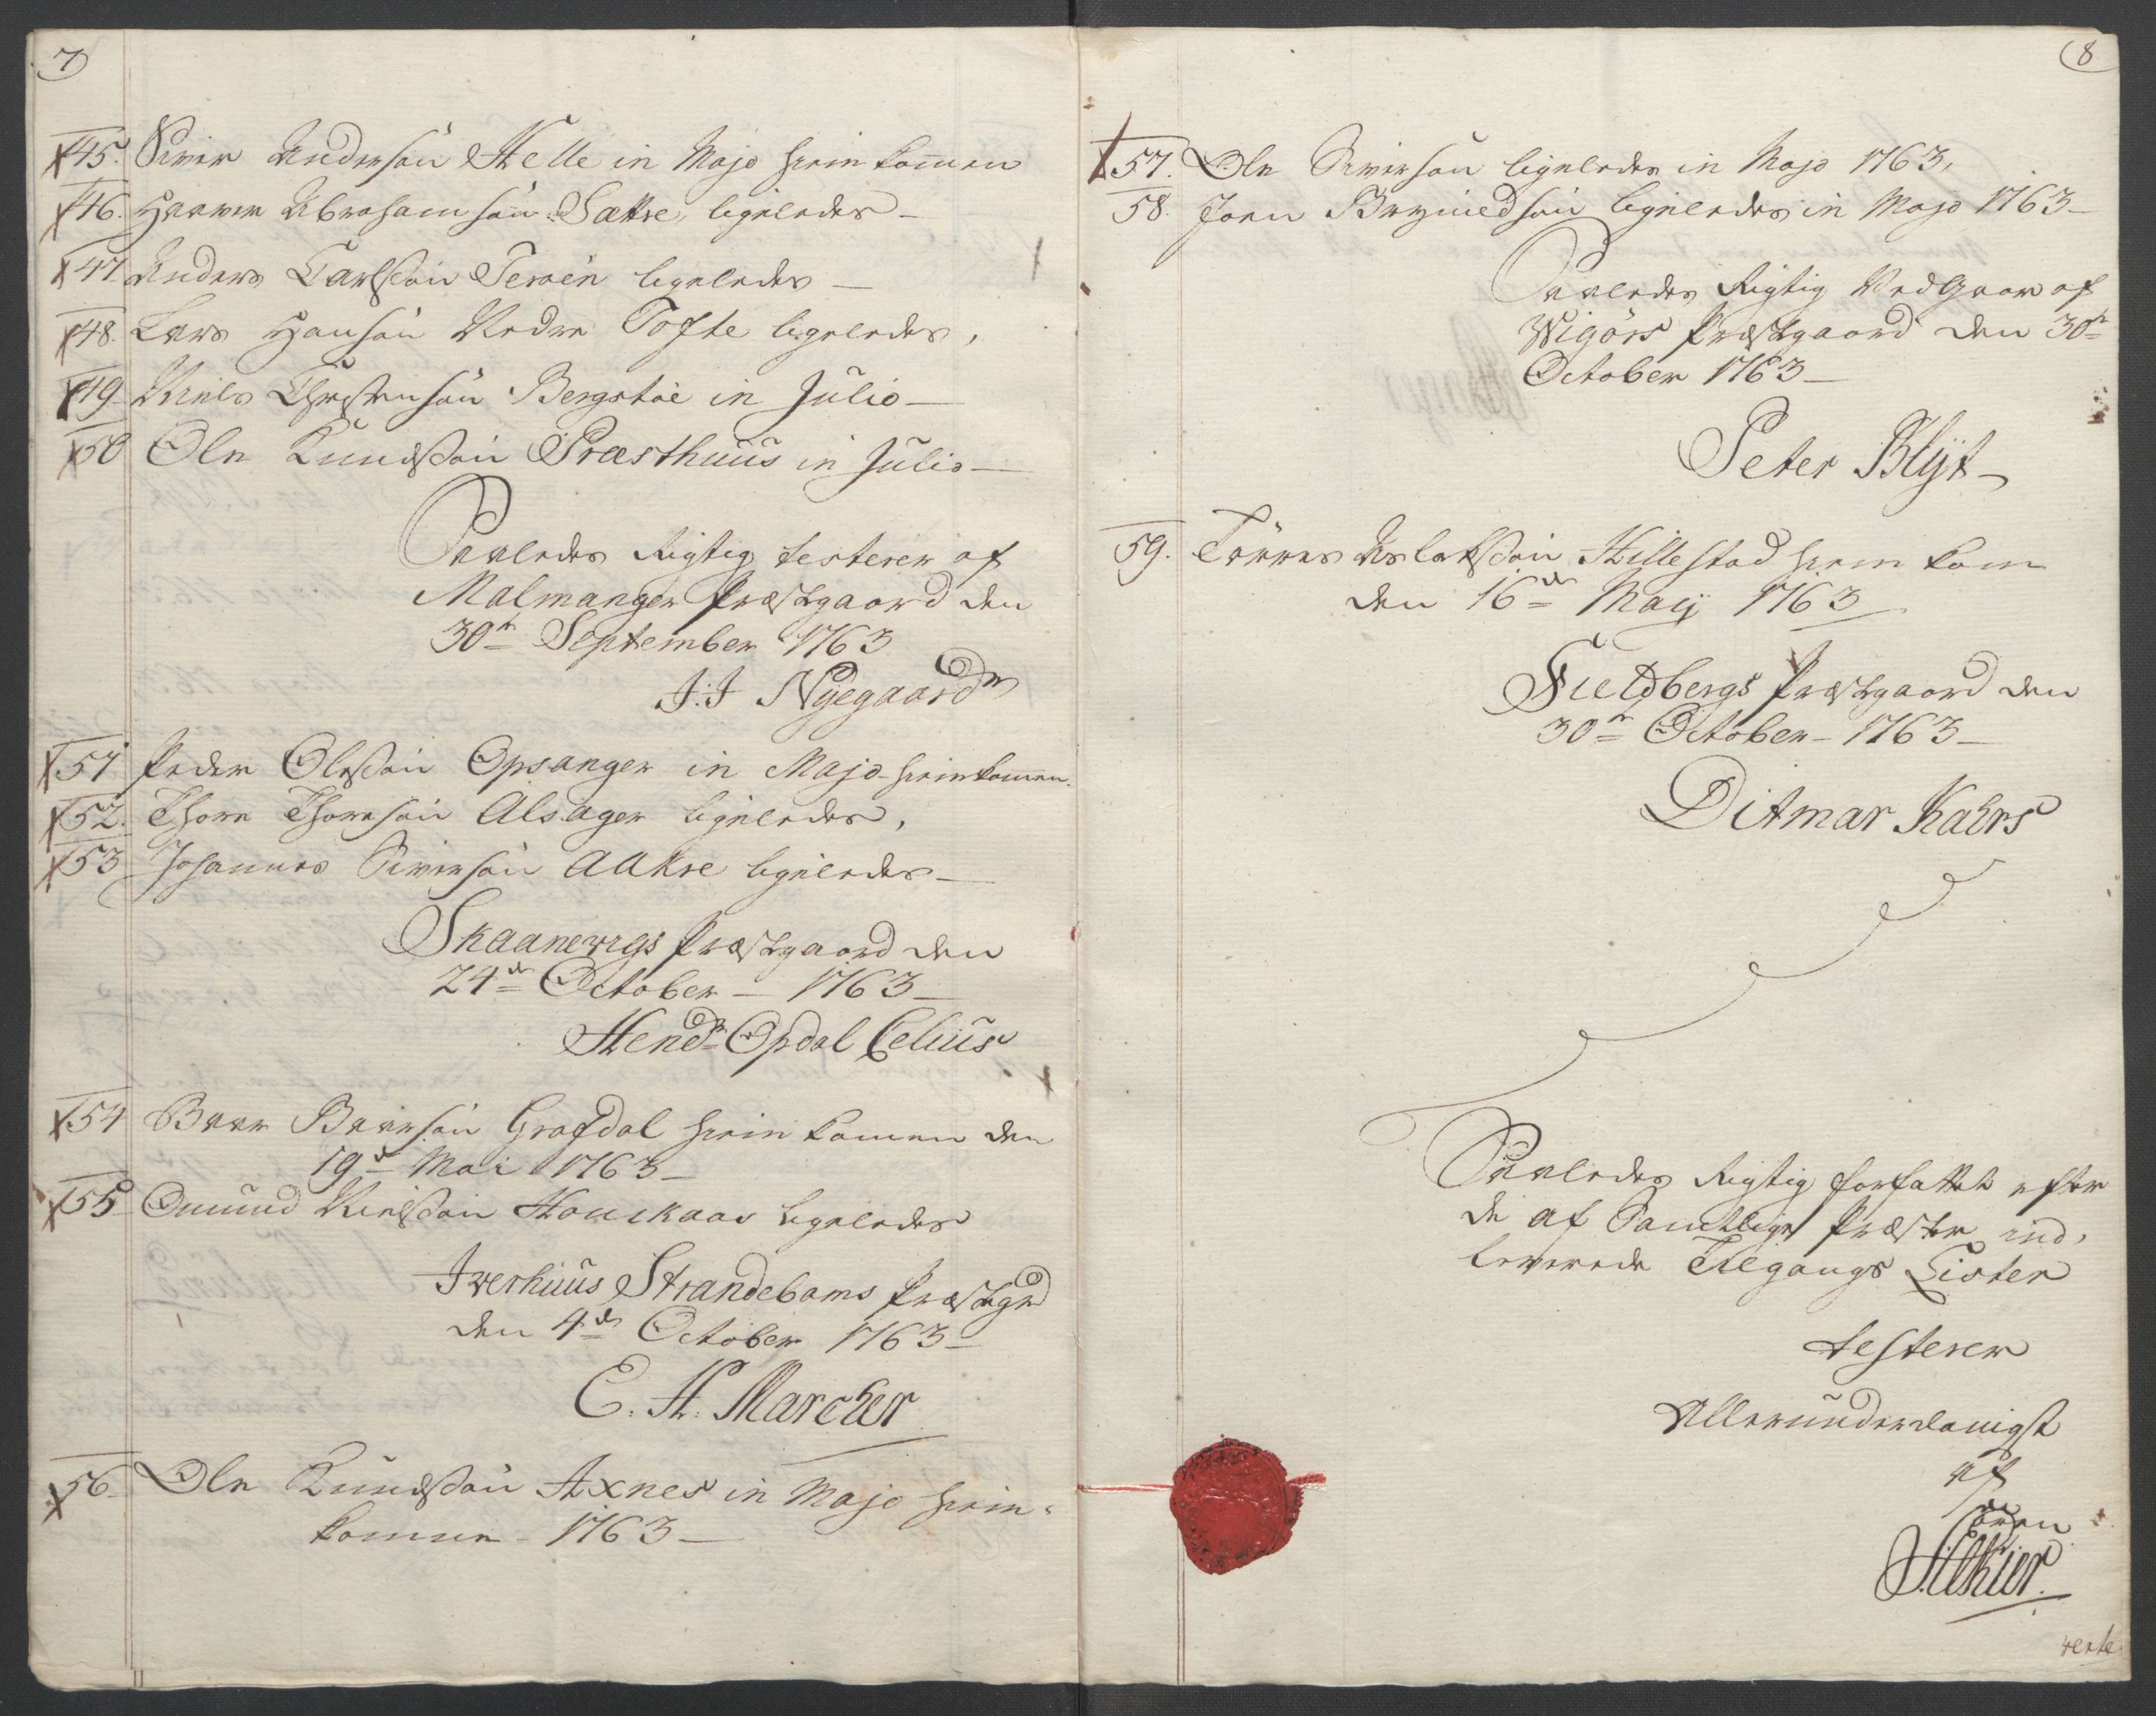 7
45. Siver Andersøn Helle in Majo hiemkommen
46. Haaver Abrahamsøn Sættre, ligeledes –
47 Anders Carlsøn Terøen ligeledes –
48. Lars Hansøn Nedre Tofte ligeledes,
49 Niels Christensøn Bergstøe in Julio –
50 Ole Knudsøn Præsthuus in Julio –
Saaledes Rigtig testerer af
Malmanger Præstgaard den
30te September 1763
J: J Nyegaard
51 Peder Olesøn Opsanger in Majo hiemkommen.
52. Thore Thoresøn Alsager ligeledes,
53 Johannes Siversøn Aakre ligeledes –
Skaanewigs Præstgaard den
24de October – 1763 –
Hendr Opdal Celius
54 Baar Baarsøn Grafdal hiemkommen den
19de Mai 1763 –
55 Omund Nielsøn Houckaas ligeledes
Iverhuus Strandebarms Præstgrd
den 4de October 1763 –
E. H. Marcher
56 Ole Knudsøn Axnes in Majo hiem-
kommen – 1763 –
8
57. Ole Siversøn ligeledes in Majo 1763,
58. Joen Brynildsøn ligeledes in Majo 1763 –
Saaledes Rigtig Vedgaar af
Wigørs Præstgaard den 30te
October 1763 –
Peter Blÿt
59. Tørres Aslaksøn Hillestad hiemkom
den 16de Maij 1763
Fieldbergs Præstgaard den
30te October – 1763 –
Ditmar Kahrs
Saaledes Rigtig forfattet efter
de af Samtlige Præster ind-
leverede Tilgangs Lister
testerer
Allerunderdanigst
af
verte